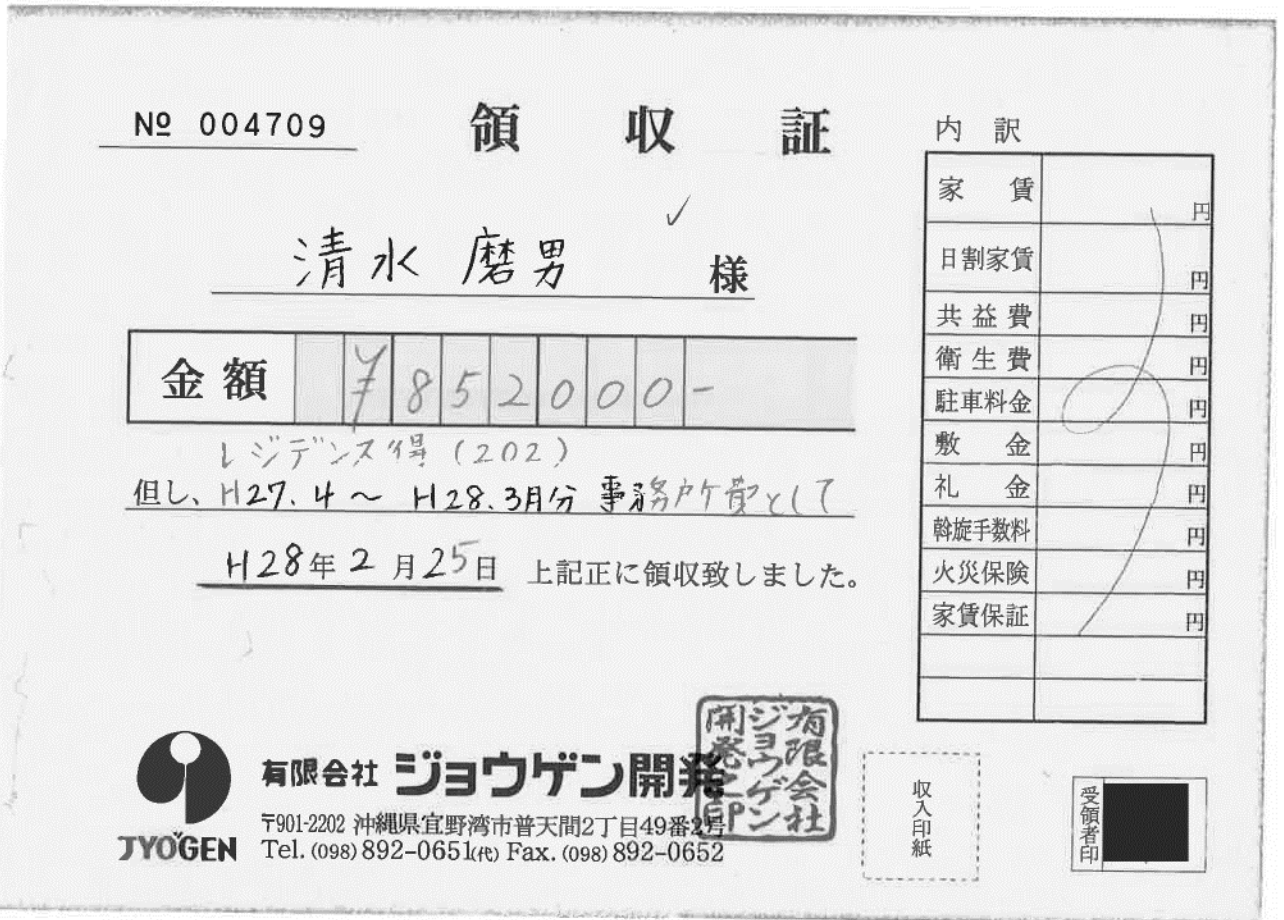 № 004709
領収証
清水 磨男 様
金額 ¥852000-
レジデンス得(202)
但し、H27.4～H28.3月分 事務所費として
H28年2月25日 上記正に領収致しました。
内訳
家賃 円
日割家賃 円
共益費 円
衛生費 円
駐車料金 円
敷金 円
礼金 円
斡旋手数料 円
火災保険 円
家賃保証 円
JYOGEN
有限会社 ジョウゲン開発
〒901-2202 沖縄県宜野湾市普天間2丁目49番2号
Tel.(098)892-0651(代) Fax.(098)892-0652
有限会社
ジョウゲン
開発之印
収入印紙
受領者印